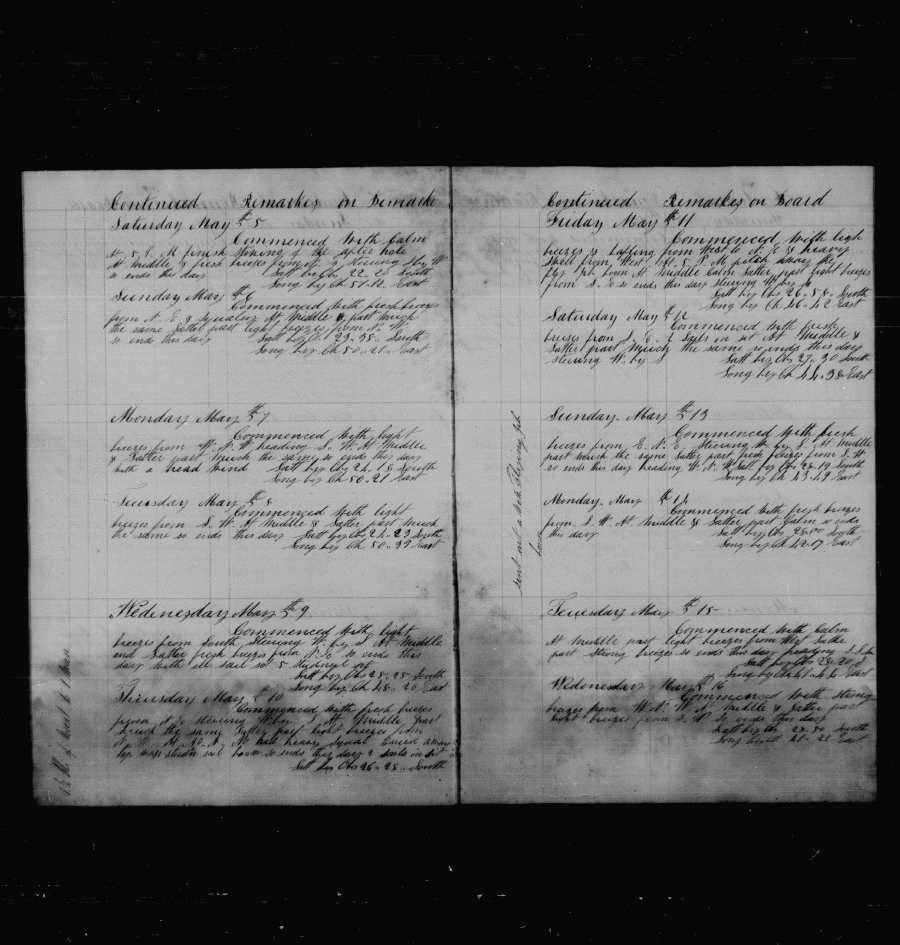 Continued Remarks on Bemarke
Saturday May th 5
Commenced With Calm
At 5 P. M finish of the after hole
At Middle & fresh breezes from
so ends this day Latt by Obs 22.20 South
Long by Ch 51.12 East
Sunday May th 6
Commenced With fresh breezes
from N. E & Squaley At Middle & part much
the same Latter part light breezes from N. W
so ends this day Latt by 23.38 South
Long by Ch 50.21 East
Monday May th 7
Commenced With light
breezes from W. N. W heading S. W. At Middle
& Latter part much the same so ends this day
with a head Wind Latt by Obs 24.18 South
Long by Ch 50.21 East
Tuersday May th 8
Commenced With light
breezes from S. W. At Middle & Latter part much
the same so ends this day Latt by Obs 24.23 South
Long by Ch 50.39 East
Wedenesday May th 9
Commenced With light
breezes from South Steering W. by At Middle
and Latter fresh breezes from N. E so ends this
day With all sail set
Latt by Obs 25.25 South
Long by Ch 48.20 East
Thuersday May th 10
Commenced With fresh breezes
from N. E stering W by S. At Middle part
much the same Latter part light breezes from
N. W. At heavy squal away
so ends this day 2 sails in sit
Latt by Obs 26.28 South
Continued Remarkes on Board
Friday May th 11
Commenced With ligh
breezes & from West to N. E & heavey
from West At 5 P. M away the
Fly jib boom At Middle Calm Latter part light breezes
from S. E so ends this day stering W. by
Latt by Obs 26.56 South
Long by Ch 46.42 East
Saturday May th 12
Commenced With fresh
breezes from S. E 2 Sails in sit At Middle &
Latter part Much the same so ends this day
stering W. by S Latt by Obs 27.30 South
Long by Ch 44.38 East
Sunday May th 13
Commenced With fresh
breezes from E. N. E. Stering W by S. At Middle
part much the same Latter part fresh breezes from S. W
so ends this day heading W. N. W Latt by Obs 28.19 South
Long by Ch 43.49 East
Monday May th 14
Commenced With fresh breezes
from S. W. At Middle & Latter part Calm so ends
this day Latt by Obs 28.00 South
Long by Ch 42.17 East
sent out a new Flying jib
boom
Teuesday May th 15
Commenced With Calm
At Middle part light breezes from West Latter
part strong breezes so ends this day heading
Latt by Obs 28.20
Long by Ch 41.44 East
Wedenesday May th 16
Commenced With strong
breezes from W. N. W. At Middle & Latter part
light breezes from S. W. so ends this day
Latt by Obs South
Long East